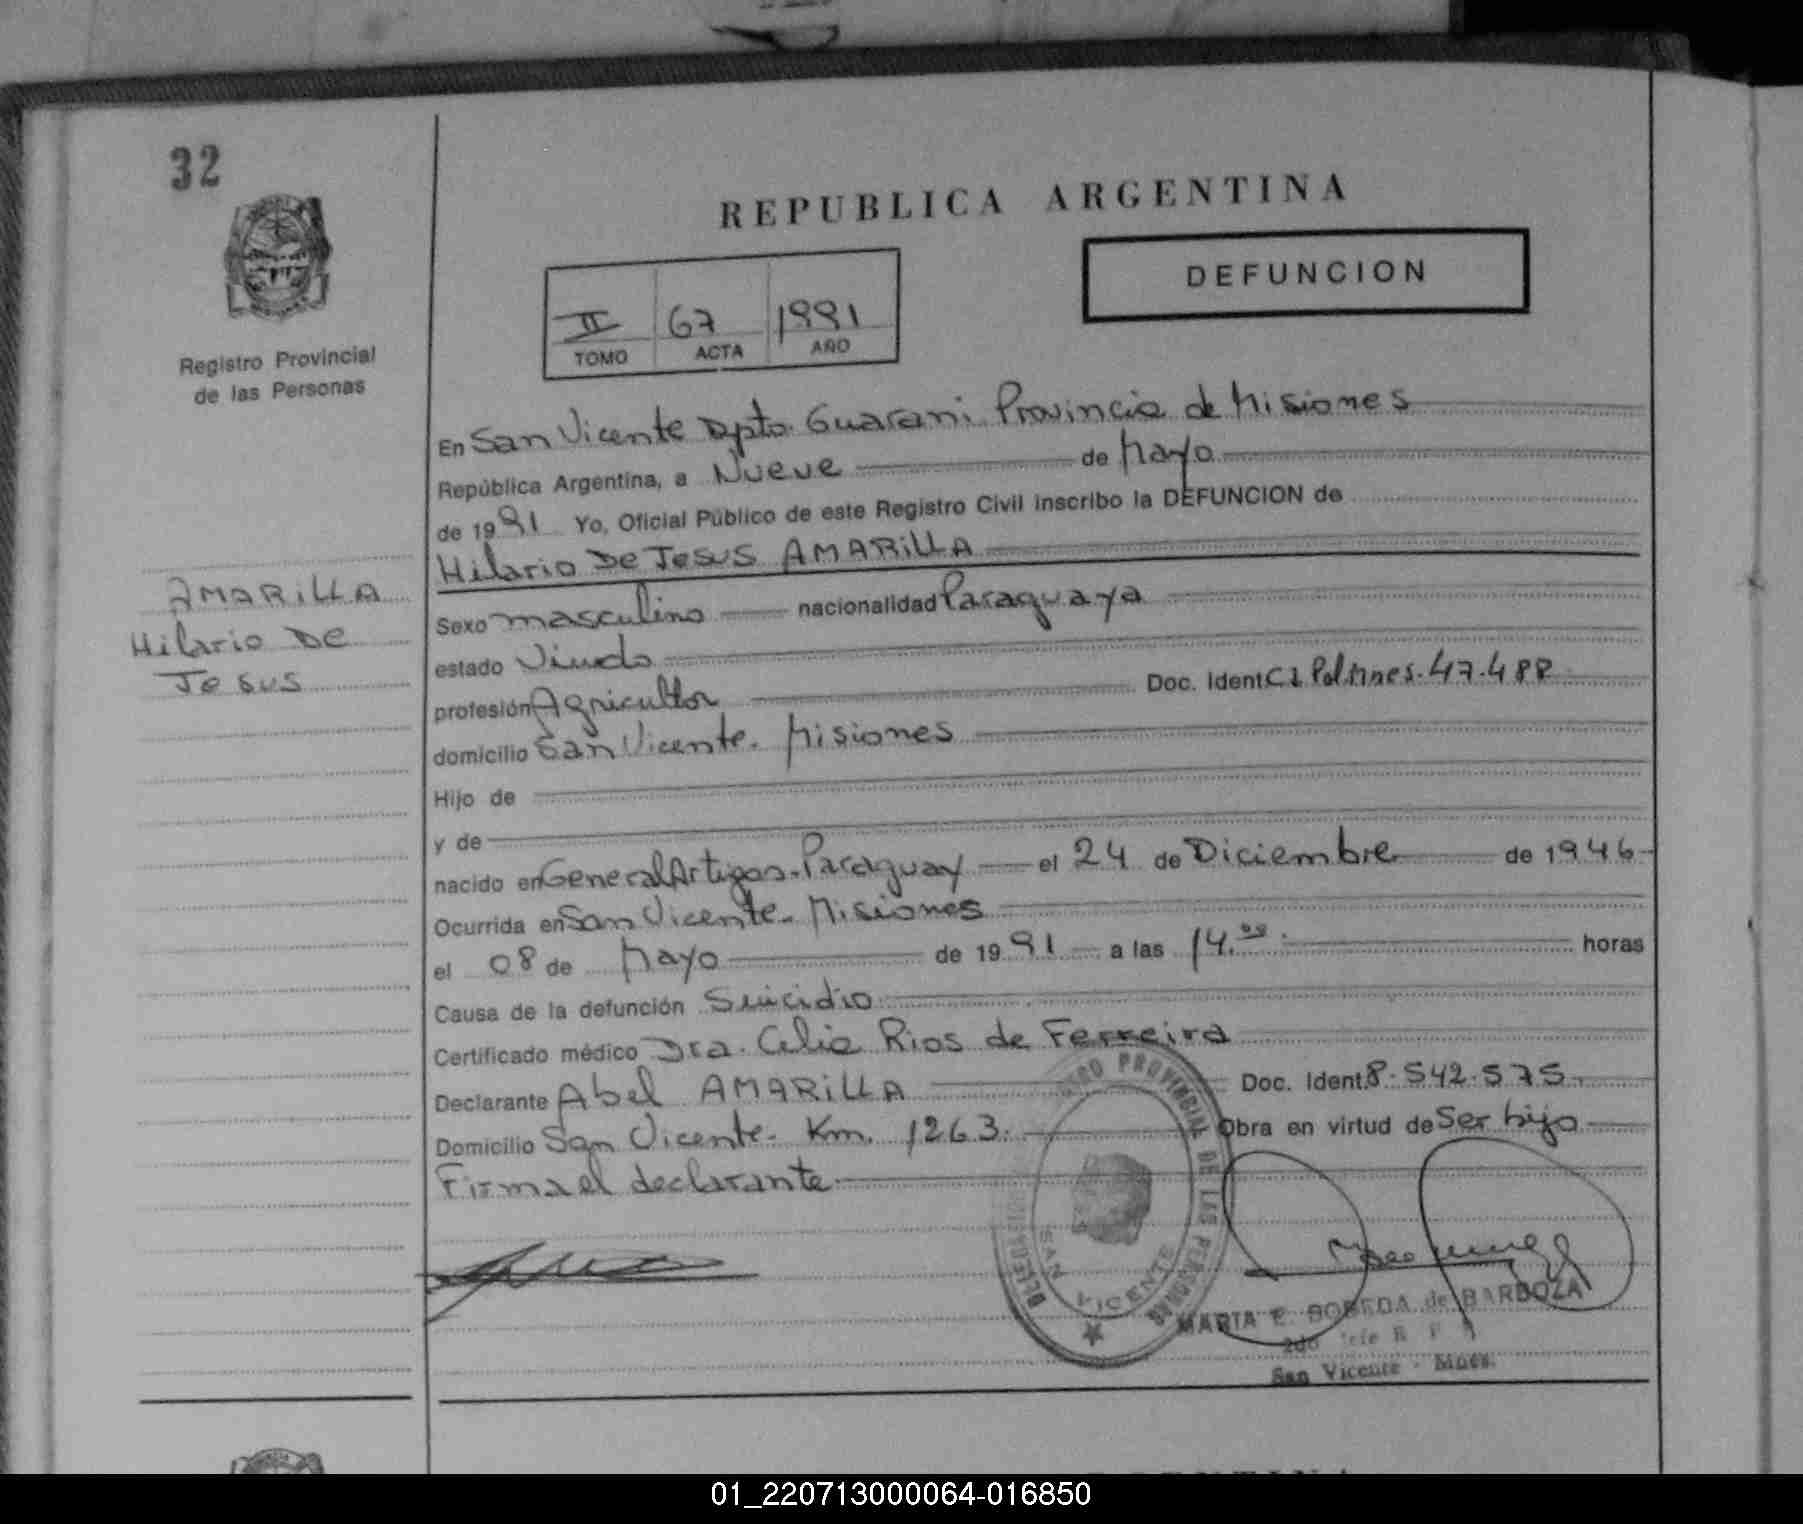 32
REPUBLICA ARGENTINA
DEFUNCION
II 67 1991
TOMO ACTA AÑO
Registro Provincial
de las Personas
AMARILLA
Hilario De
Jesus
En San Vicente Dpto. Guarani Provincia de Misiones
República Argentina, a Nueve de Mayo
de 1991 Yo, Oficial Público de este Registro Civil inscribo la DEFUNCION de
Hilario De Jesus AMARILLA
Sexo masculino nacionalidad Paraguaya
estado Viudo
profesión Agricultor Doc. Ident. CI Pol Mnes. 47.488
domicilio San Vicente. Misiones
Hijo de
y de
nacido en General Artigas. Paraguay el 24 de Diciembre de 1946
Ocurrida en San Vicente. Misiones
el 08 de Mayo de 1991 a las 14.00 horas
Causa de la defunción Suicidio
Certificado médico Dra. Celia Rios de Ferreira
Declarante Abel AMARILLA Doc. Ident. 8.542.575
Domicilio San Vicente. Km. 1263. Obra en virtud de Ser hijo
Firma el declarante
PROVINCIAL DE LAS PERSONAS
SAN VICENTE
MARIA E. BOBEDA de BARBOZA
San Vicente - Mnes.
01_220713000064-016850